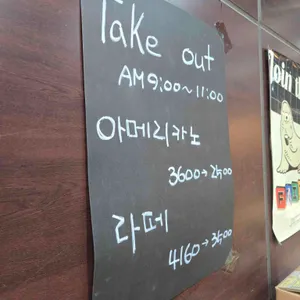 Take out
AM 9:00~11:00
아메리카노
3600→2500
라떼
4160→3500
Join